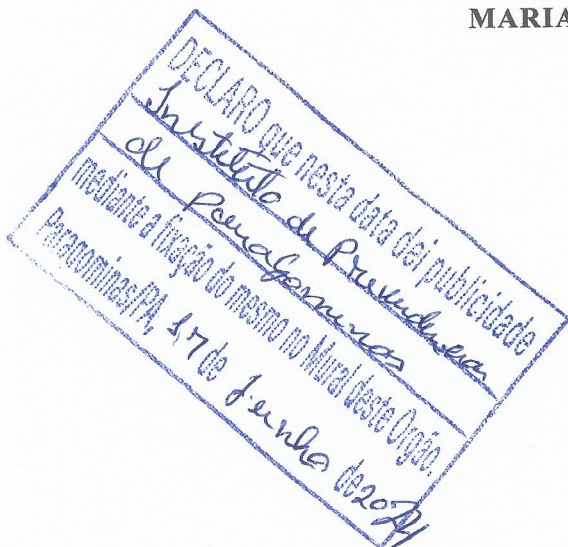 MARIA
DECLARO que nesta data dei publicidade
Instituto de Previdencia
de paragominas
mediante a fixação do mesmo no Mural deste Orgão.
Paragominas/PA, 17 de Junho de 2024